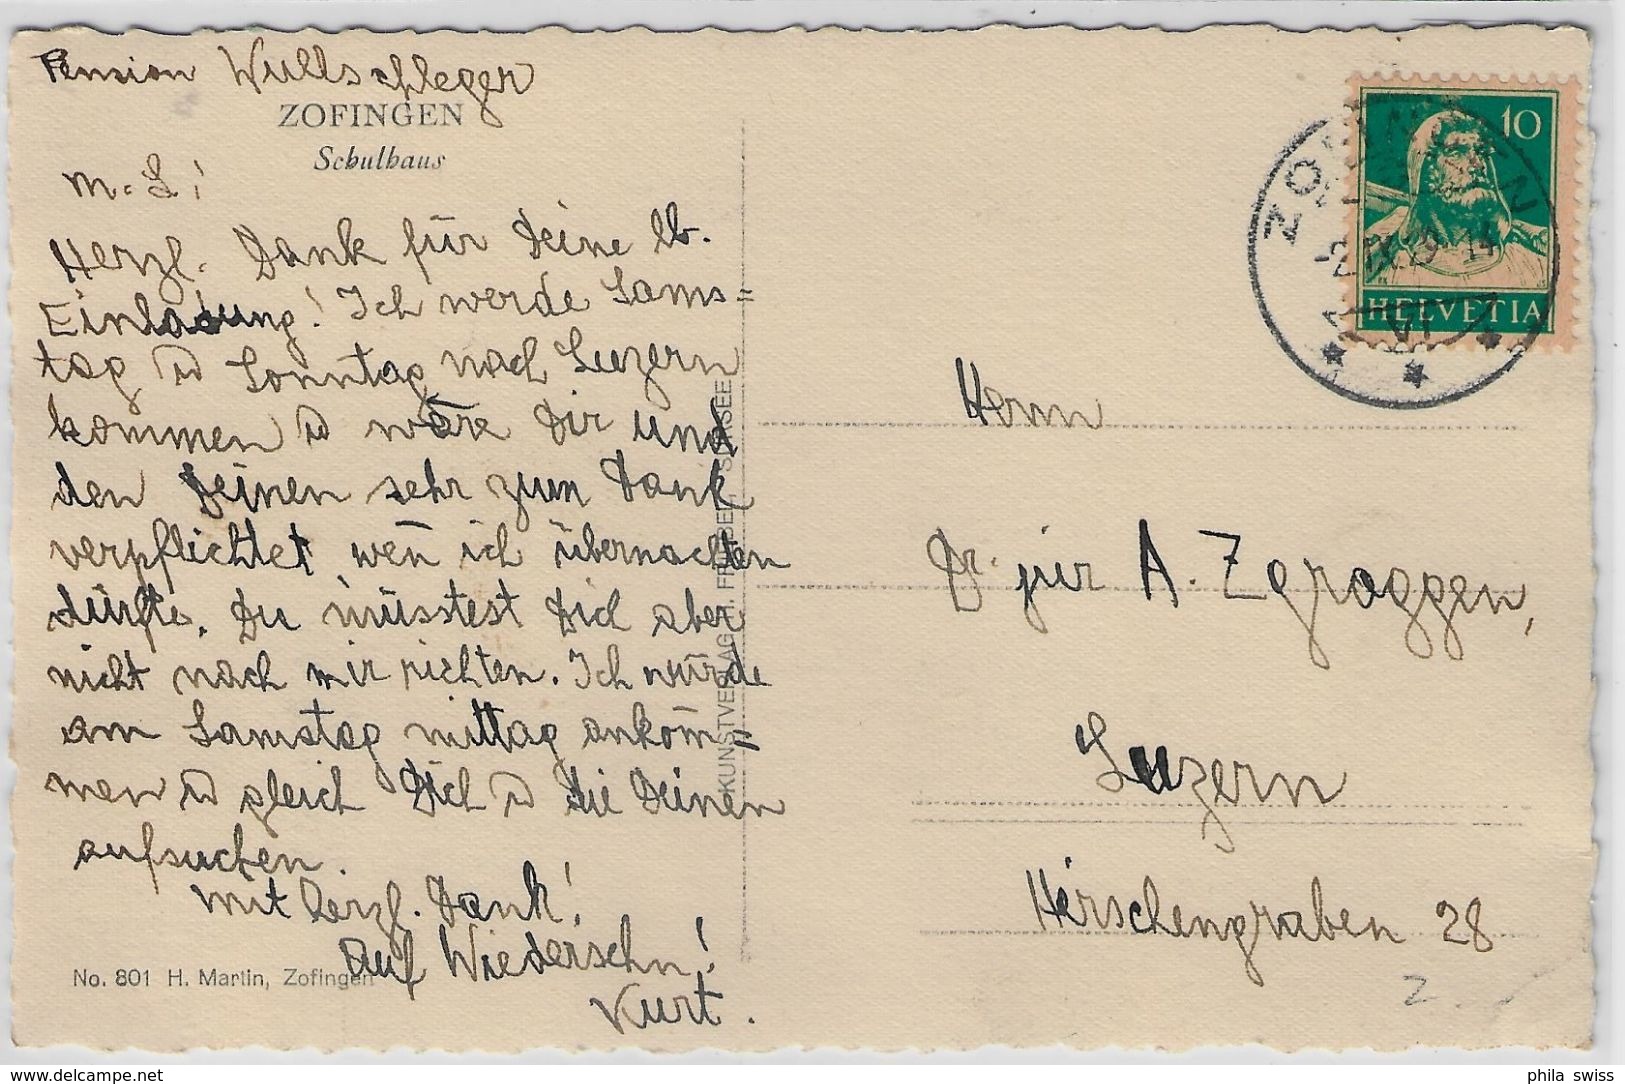 Pension Wullschleger
ZOFINGEN
Schulhaus
M. L!
Herzl. Dank für Deine lb.
Einladung! Ich werde Sams=
tag u Sonntag nach Luzern
kommen u wäre Dir und
den Deinen sehr zum Dank
verpflichtet wen̄ ich übernachten
dürfte. Du müsstest Dich aber
nicht nach mir richten. Ich würde
am Samstag mittag ankom̄=
men u gleich Dich u die Deinen
aufsuchen.
Mit herzl. Dank!
Auf Wiedersehn!
Kurt.
No. 801 H. Martin, Zofingen
KUNSTVERLAG H. FRIEBEL, SURSEE
10
HELVETIA
ZOFINGEN
IX.29.14
VI
Herrn
Dr. jur A. Zgraggen,
Luzern
Hirschengraben 28
Z
delcampe.net
phila_swiss